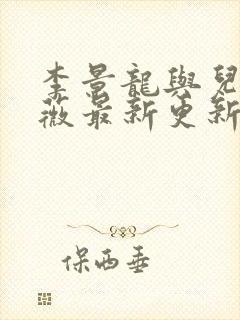 李景龍與兒
薇最新更新
保西垂